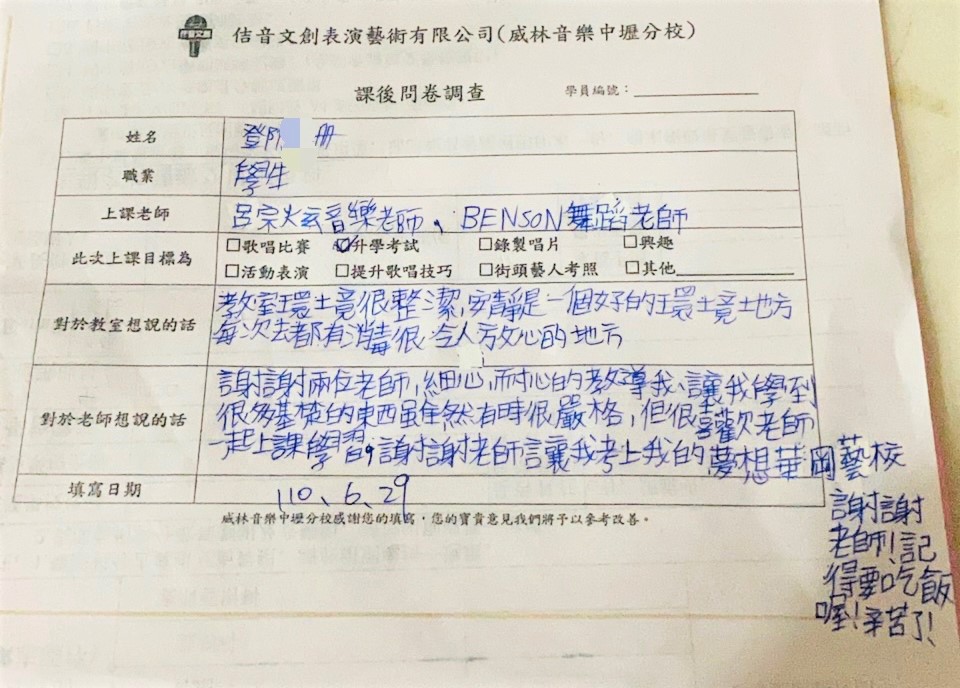 佶音文創表演藝術有限公司(威林音樂中壢分校)
課後問卷調查
學員編號：
姓名 鄧 册
職業 學生
上課老師 呂宗炫音樂老師、BENSON舞蹈老師
此次上課目標為
□歌唱比賽 ☑升學考試 □錄製唱片 □興趣
□活動表演 □提升歌唱技巧 □街頭藝人考照 □其他
對於教室想說的話
教室環境很整潔,安靜是一個好的環境地方
每次去都有消毒很令人放心的地方
對於老師想說的話
謝謝兩位老師,細心,耐心的教導我、讓我學到
很多基礎的東西雖然有時很嚴格,但很喜歡老師
一起上課學習,謝謝老師讓我考上我的夢想華岡藝校
謝謝
老師!記
得要吃飯
喔!辛苦了!
填寫日期 110、6、29
威林音樂中壢分校感謝您的填寫，您的寶貴意見我們將予以參考改善。